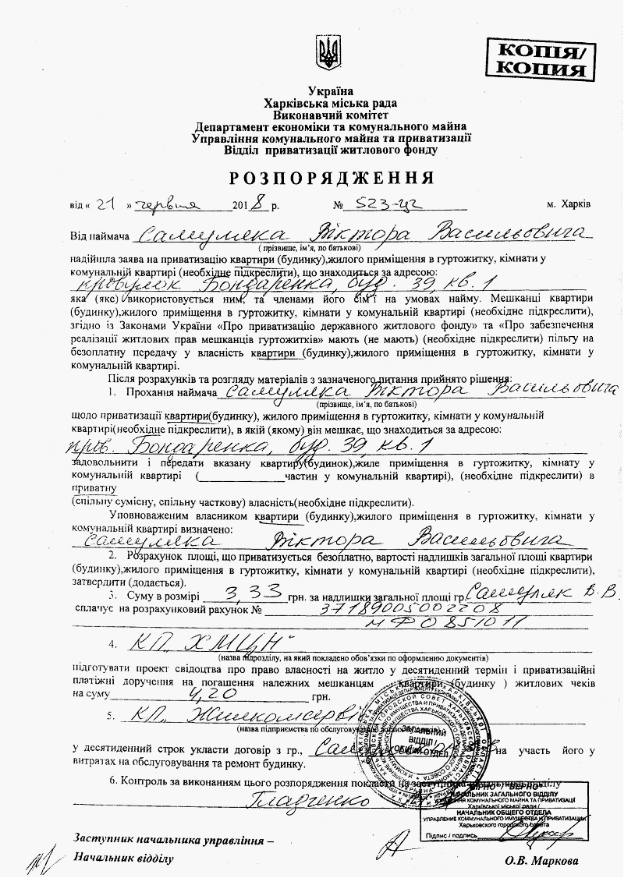 КОПІЯ/
КОПИЯ
Україна
Харківська міська рада
Виконавчий комітет
Департамент економіки та комунального майна
Управління комунального майна та приватизації
Відділ приватизації житлового фонду
РОЗПОРЯДЖЕННЯ
від « 21 » червня 2018 р. № 523-Ц2 м. Харків
Від наймача Самуляка Віктора Васильовича
( прізвище, ім'я, по батькові)
надійшла заява на приватизацію квартири (будинку),жилого приміщення в гуртожитку, кімнати у
комунальній квартирі (необхідне підкреслити), що знаходиться за адресою:
провулок Бондаренка, буд. 39, кв. 1
яка (яке) використовується ним та членами його сім'ї на умовах найму. Мешканці квартири
(будинку),жилого приміщення в гуртожитку, кімнати у комунальній квартирі (необхідне підкреслити),
згідно із Законами України «Про приватизацію державного житлового фонду» та «Про забезпечення
реалізації житлових прав мешканців гуртожитків» мають (не мають) (необхідне підкреслити) пільгу на
безоплатну передачу у власність квартири (будинку),жилого приміщення в гуртожитку, кімнати у
комунальній квартирі.
Після розрахунків та розгляду матеріалів з зазначеного питання прийнято рішення:
1. Прохання наймача Самуляка Віктора Васильовича
(прізвище, ім'я, по батькові)
щодо приватизації квартири(будинку), жилого приміщення в гуртожитку, кімнати у комунальній
квартирі(необхідне підкреслити), в якій (якому) він мешкає, що знаходиться за адресою:
пров. Бондаренка, буд. 39, кв. 1
задовольнити і передати вказану квартиру(будинок),жиле приміщення в гуртожитку, кімнату у
комунальній квартирі (______________частин у комунальній квартирі), (необхідне підкреслити) в
приватну
(спільну сумісну, спільну часткову) власність(необхідне підкреслити).
Уповноваженим власником квартири (будинку),жилого приміщення в гуртожитку, кімнати у
комунальній квартирі визначено:
Самуляка Віктора Васильовича
2. Розрахунок площі, що приватизується безоплатно, вартості надлишків загальної площі квартири
(будинку),жилого приміщення в гуртожитку, кімнати у комунальній квартирі (необхідне підкреслити),
затвердити (додається).
3. Суму в розмірі 3,33 грн. за надлишки загальної площі гр. Самуляк В.В.
сплачує на розрахунковий рахунок № 37189005002208
МФО 851011
4. КП „ХМЦН"
(назва підрозділу, на який покладено обов'язки по оформленню документів)
підготувати проект свідоцтва про право власності на житло у десятиденний термін і приватизаційні
платіжні доручення на погашення належних мешканцям квартири (будинку ) житлових чеків
на суму 4,20 грн.
5. КП „Жилкомсервіс
(назва підприємства по обслуговуванню
у десятиденний строк укласти договір з гр., на участь його у
витратах на обслуговування та ремонт будинку.
6. Контроль за виконанням цього розпорядження покласти на
Гладченко
ЗАГАЛЬНИЙ
ВІДДІЛ /
ОБЩИЙ ОТДЕЛ
ВІРНО / ВЕРНО
НАЧАЛЬНИК ЗАГАЛЬНОГО ВІДДІЛУ
УПРАВЛІННЯ КОМУНАЛЬНОГО МАЙНА ТА ПРИВАТИЗАЦІЇ
Харківської міської ради /
НАЧАЛЬНИК ОБЩЕГО ОТДЕЛА
УПРАВЛЕНИЕ КОММУНАЛЬНОГО ИМУЩЕСТВА И ПРИВАТИЗАЦИИ
Харьковского городского совета
Підпис / подпись
Заступник начальника управління –
Начальник відділу О.В. Маркова